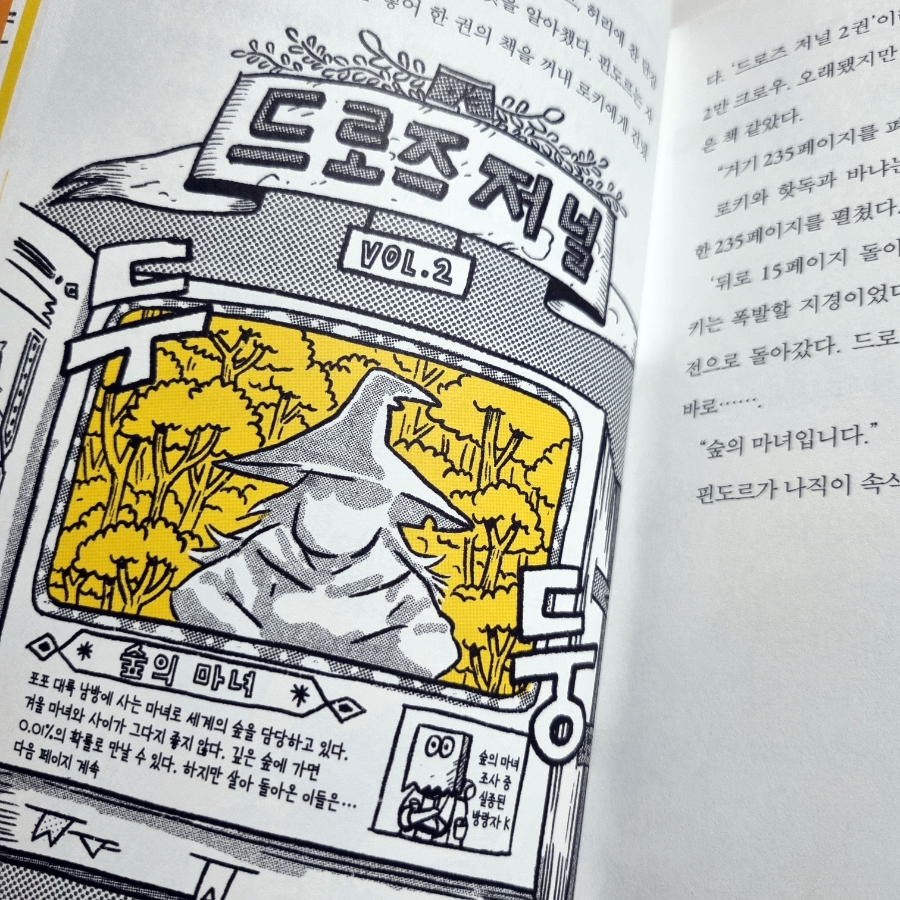 허리에 찬
을 알아챘다. 핀도르는
한 권의 책을 꺼내 로키에게
드로즈 저널
VOL.2
두
둥
숲의 마녀
포포 대륙 남방에 사는 마녀로 세계의 숲을 담당하고 있다.
겨울 마녀와 사이가 그다지 좋지 않다. 깊은 숲에 가면
0.01%의 확률로 만날 수 있다. 하지만 살아 돌아온 이들은…
다음 페이지 계속
숲의 마녀
조사 중
실종된
방랑자 K
다. ‘드로즈 저널 2권’이
2만 크로우. 오래됐지만
은 책 같았다.
“거기 235페이지를 펴
로키와 핫독과 바나나
한 235페이지를 펼쳤다.
‘뒤로 15페이지 돌아
키는 폭발할 지경이었다
전으로 돌아갔다. 드로
바로…….
“숲의 마녀입니다.”
핀도르가 나직이 속삭